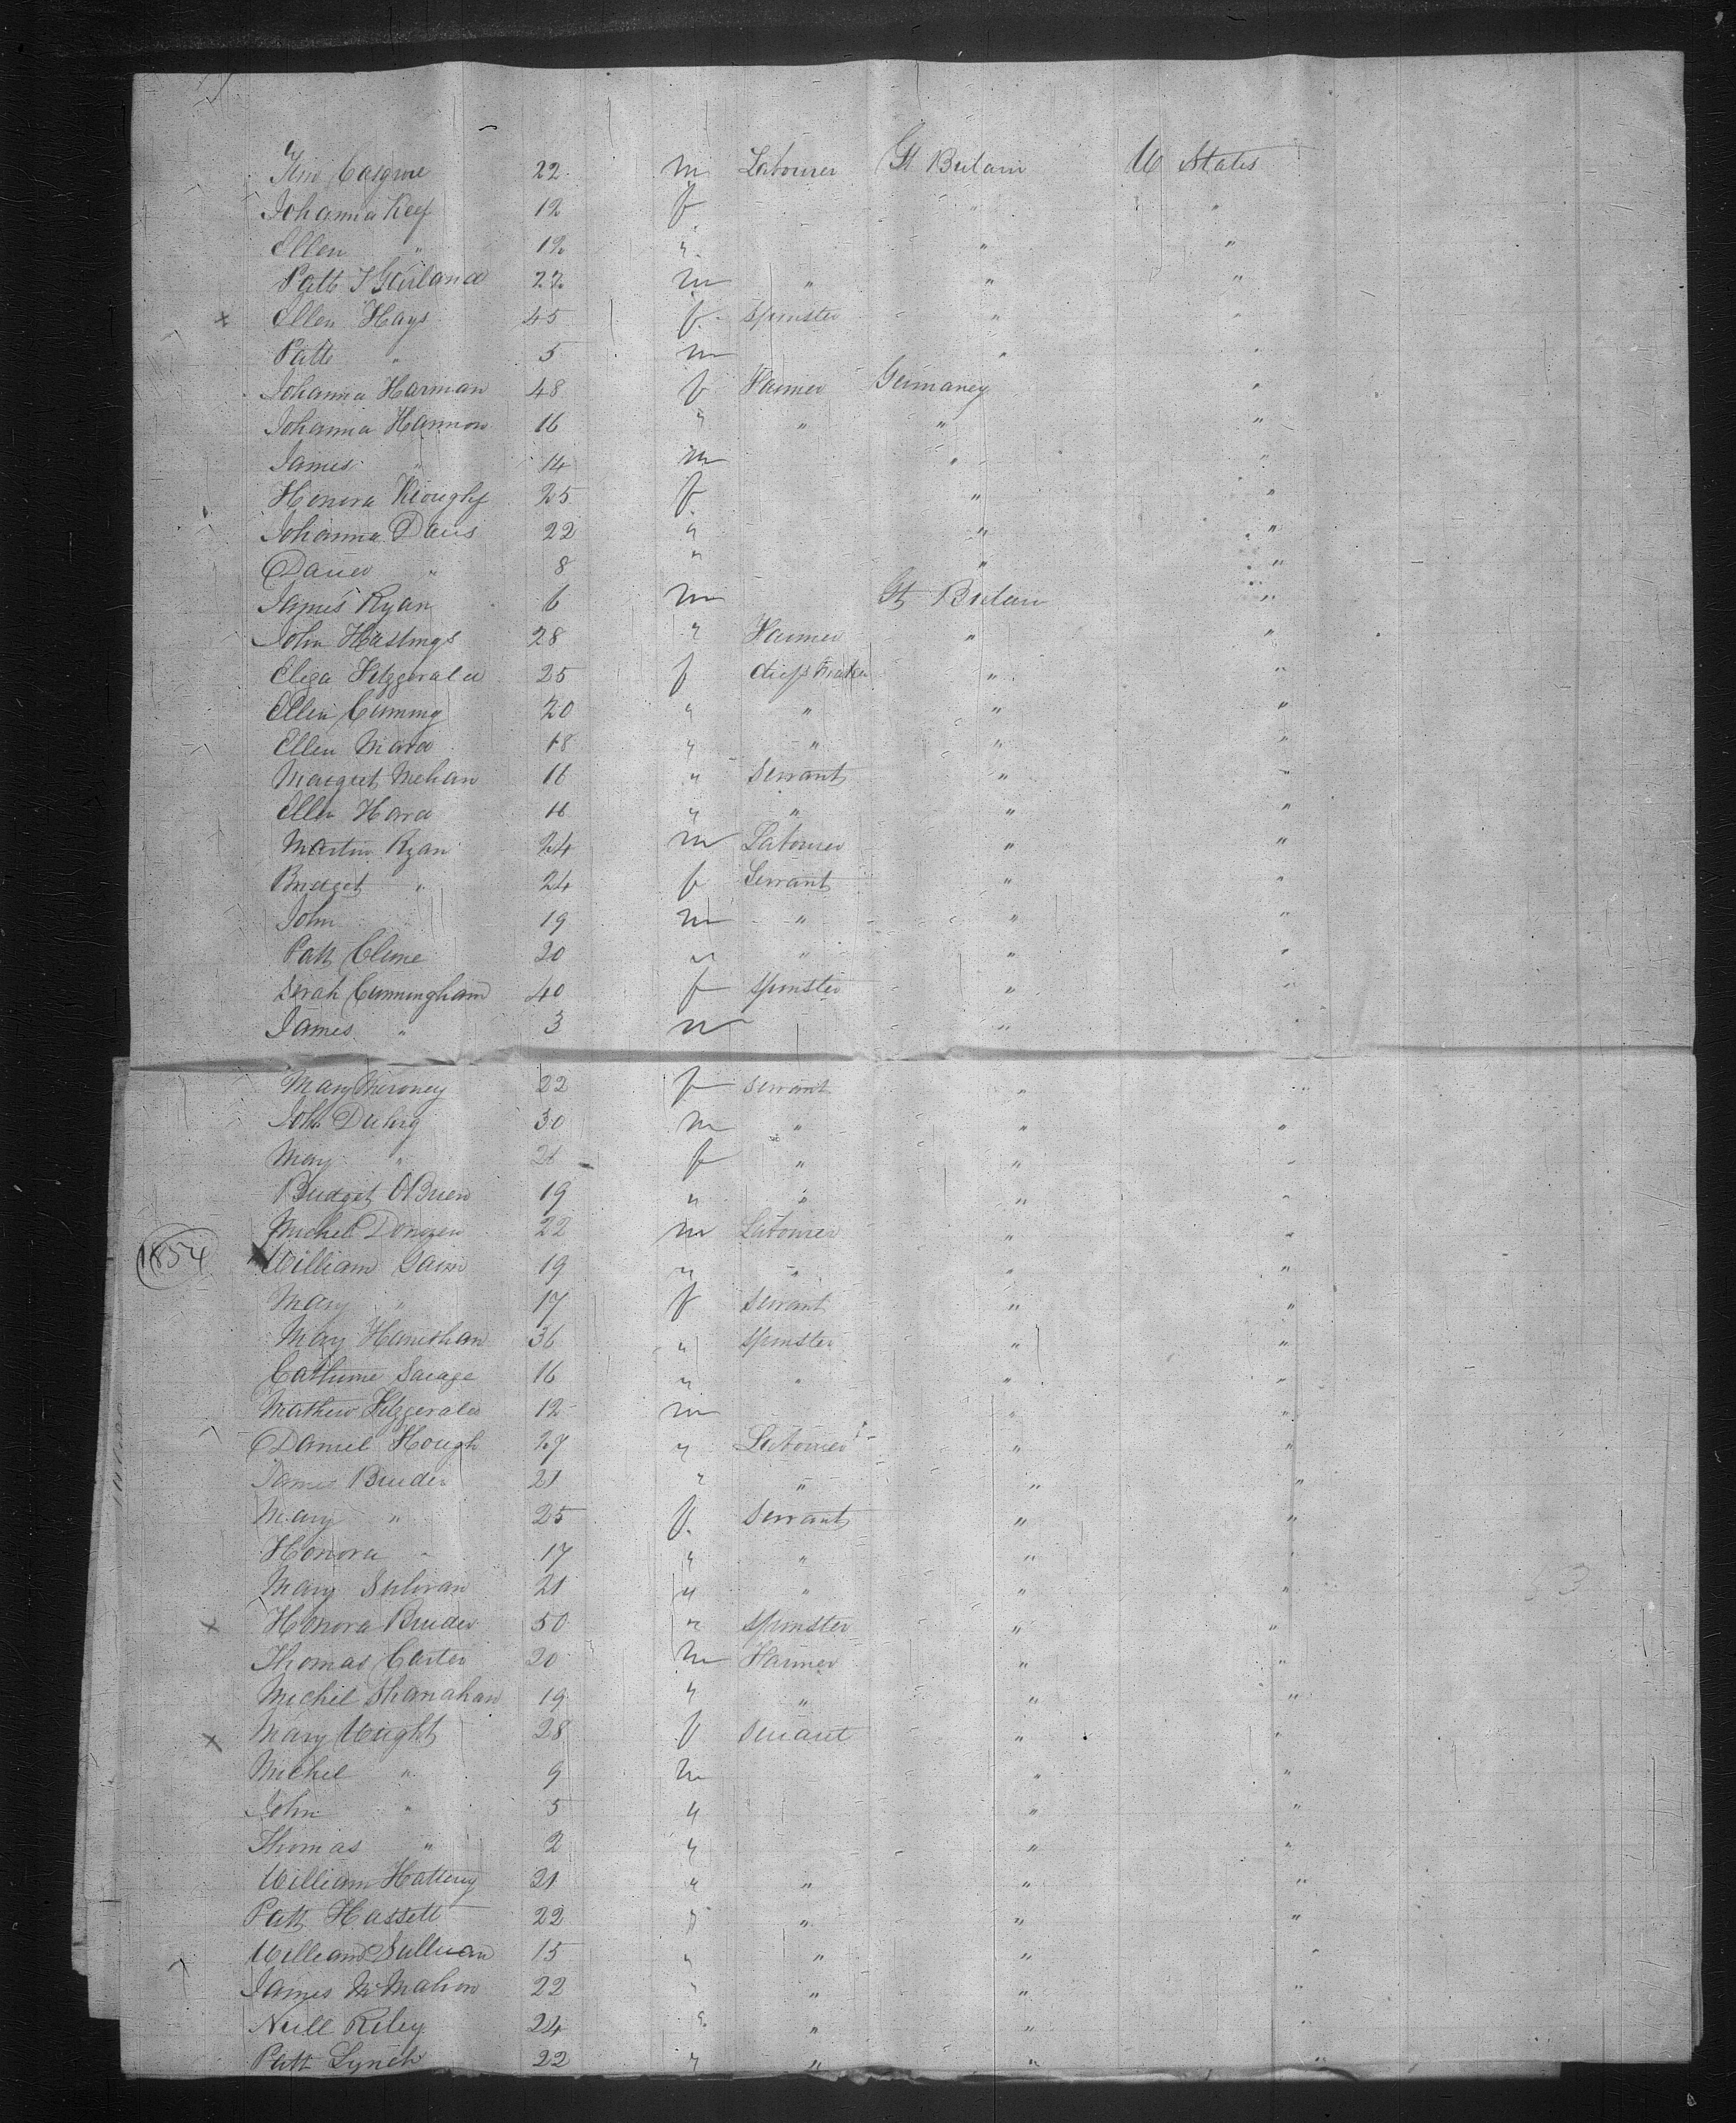 Cosgrove 22 m Labourer Gt Britain U States
Johanna Keef 12 f " "
Ellen " 12 " " "
Patt 22 m " " "
Ellen Hays 45 f Spinster " "
Patt " 5 m " "
Johanna Harman 48 f Farmer Germaney "
Johanna Hannon 16 " " " "
James " 14 m " "
Honora Kioughf 25 f " "
Johanna Davis 22 " " "
" 8 " " "
James Ryan 6 m Gt Britain "
John Hastings 28 " Farmer " "
Eliza Fitzgerald 25 f dress maker " "
Ellen Cuming 20 " " " "
Ellen Mara 18 " " " "
Margret Mehan 16 " Servant " "
Ellen Hara 16 " " " "
Martin Ryan 24 m Labourer " "
Bridget " 24 f Servant " "
John " 19 m " " "
Patt Clune 20 " " " "
Serah Cunningham 40 f Spinster " "
James " 3 m " "
Mary Meroney 22 f Servant " "
John Duhig 30 m " " "
Mary " 21 f " " "
Bridget OBrien 19 " " " "
Michel 22 m Labourer " "
1854
William 19 " " " "
Mary " 17 f Servant " "
Mary Hanishan 36 " Spinster " "
Catherine Savage 16 " " " "
Mathew Fitzgerald 12 m " "
Daniel Hough 27 " Labourer " "
James Bruder 21 " " " "
Mary " 25 f Servant " "
Honora " 17 " " " "
Mary Sulivan 21 " " " "
Honora Bruder 50 " Spinster " "
Thomas Carter 20 m Farmer " "
Michel Shanahan 19 " " " "
Mary Wright 28 f Servant " "
Michel " 9 m " "
John " 5 " " "
Thomas " 2 " " "
William Hattery 21 " " " "
Patt Hassett 22 " " " "
William Sullivan 15 " " " "
James McMahon 22 " " " "
Neill Riley 24 " " " "
Patt Lynch 22 " " " "